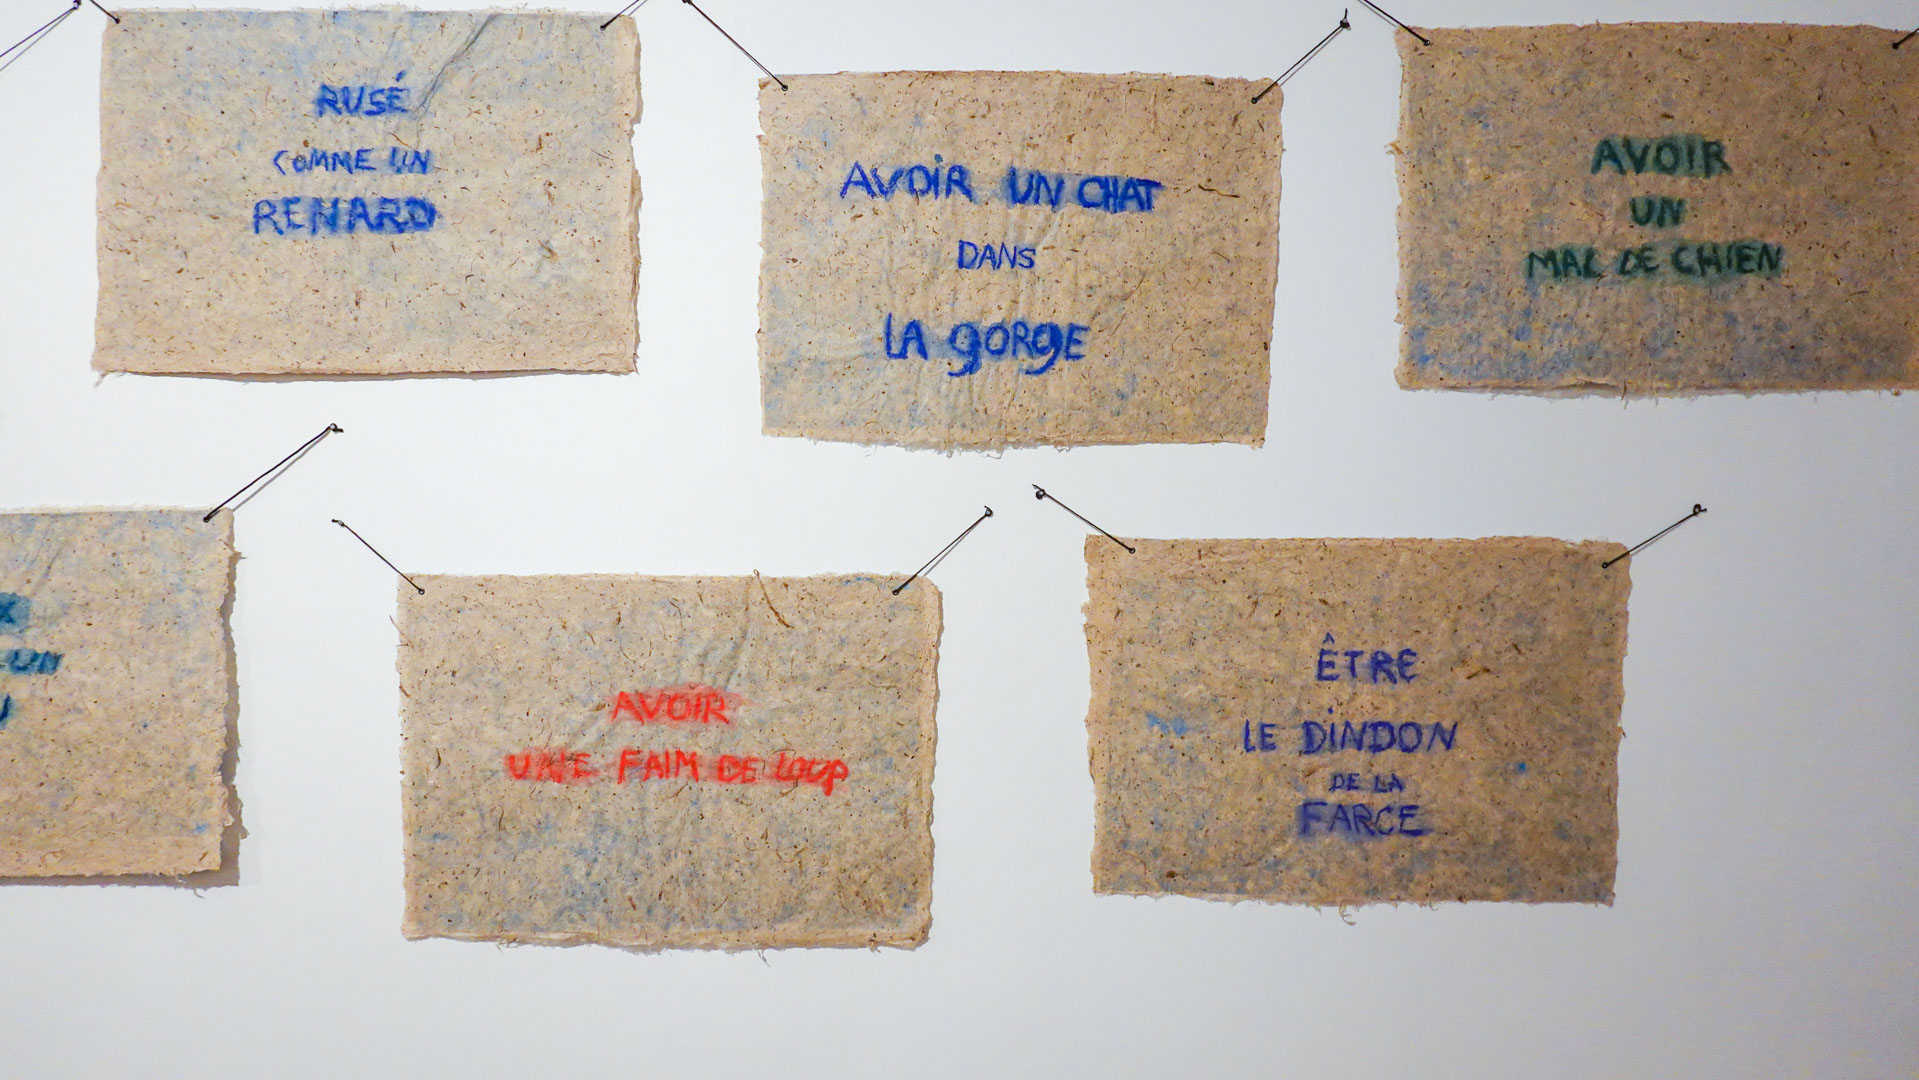 RUSÉ
COMME UN
RENARD
AVOIR UN CHAT
DANS
LA gORgE
AVOIR
UN
MAL DE CHIEN
UN
AVOIR
UNE FAIM DE LOUP
ÊTRE
LE DINDON
DE LA
FARCE